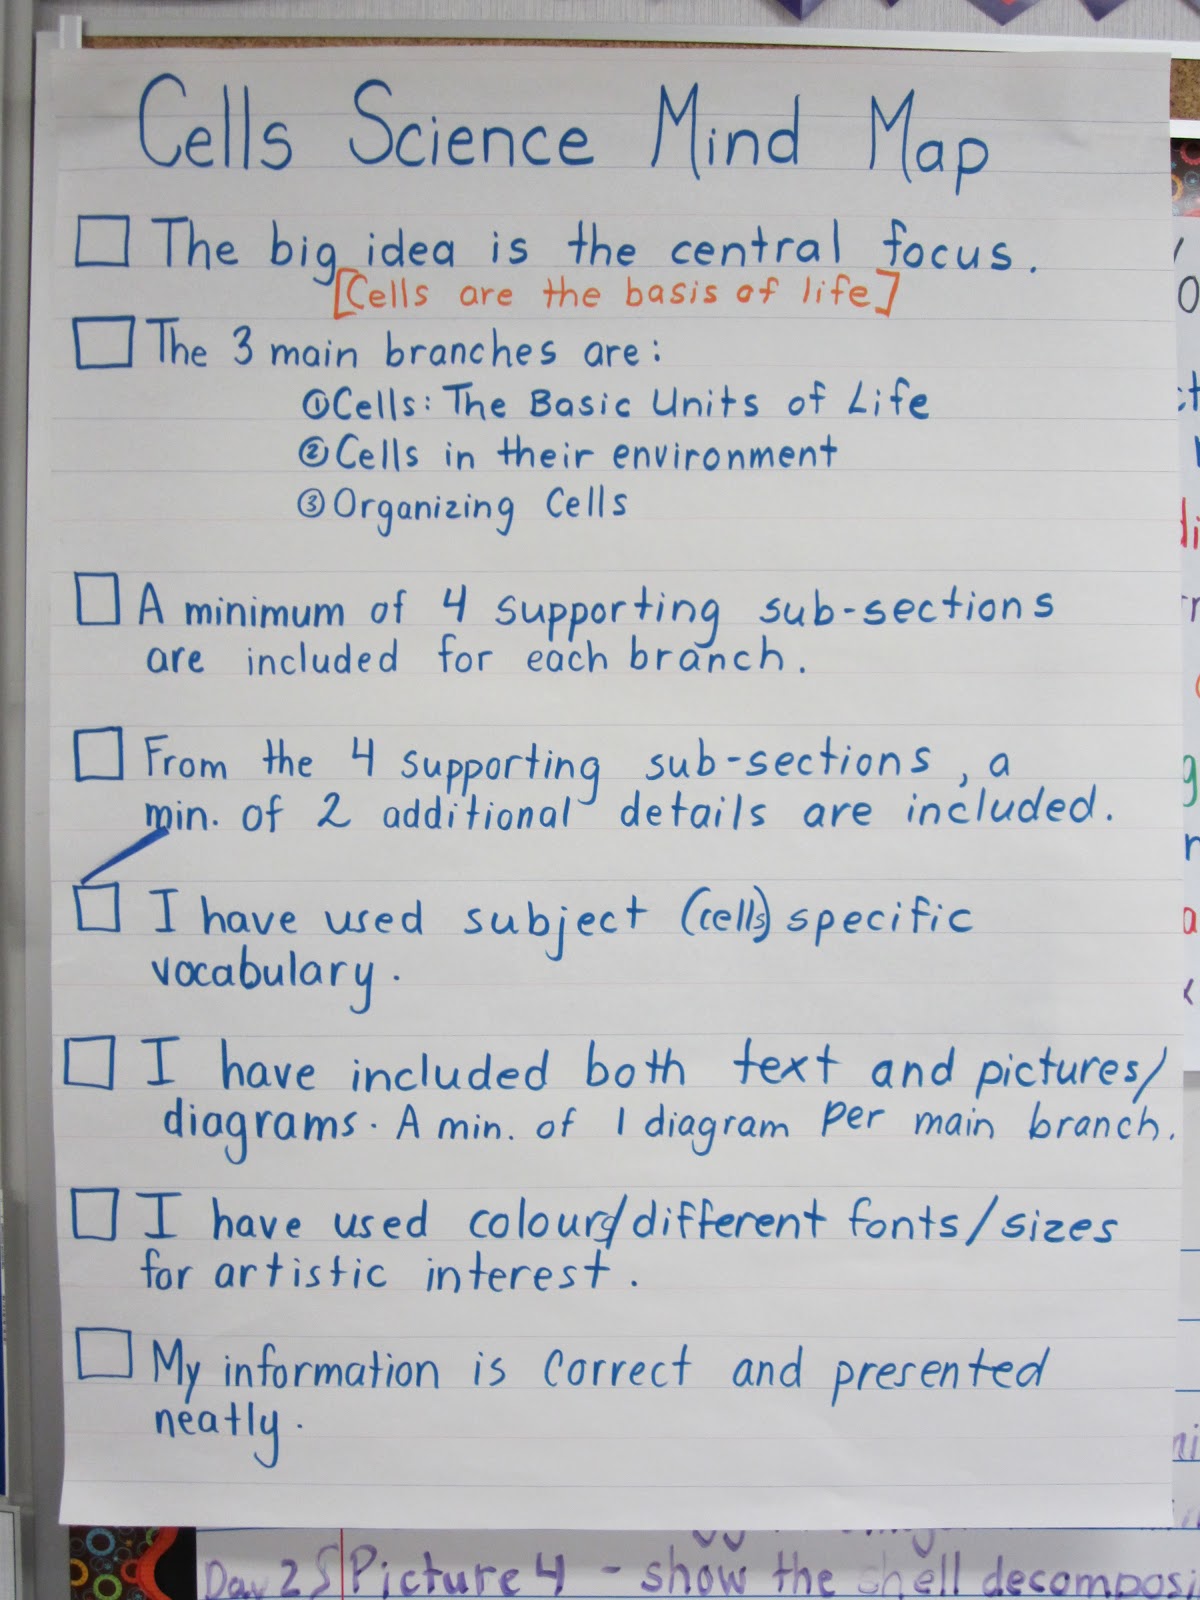 Cells Science Mind Map
The big idea is the central focus.
[Cells are the basis of life]
The 3 main branches are:
① Cells: The Basic Units of Life
② Cells in their environment
③ Organizing Cells
A minimum of 4 supporting sub-sections
are included for each branch.
From the 4 supporting sub-sections, a
min. of 2 additional details are included.
I have used subject (cells) specific
vocabulary.
I have included both text and pictures/
diagrams. A min. of 1 diagram per main branch.
I have used colours/different fonts/sizes
for artistic interest.
My information is correct and presented
neatly.
Day 25 Picture 4 - show the shell decomposi